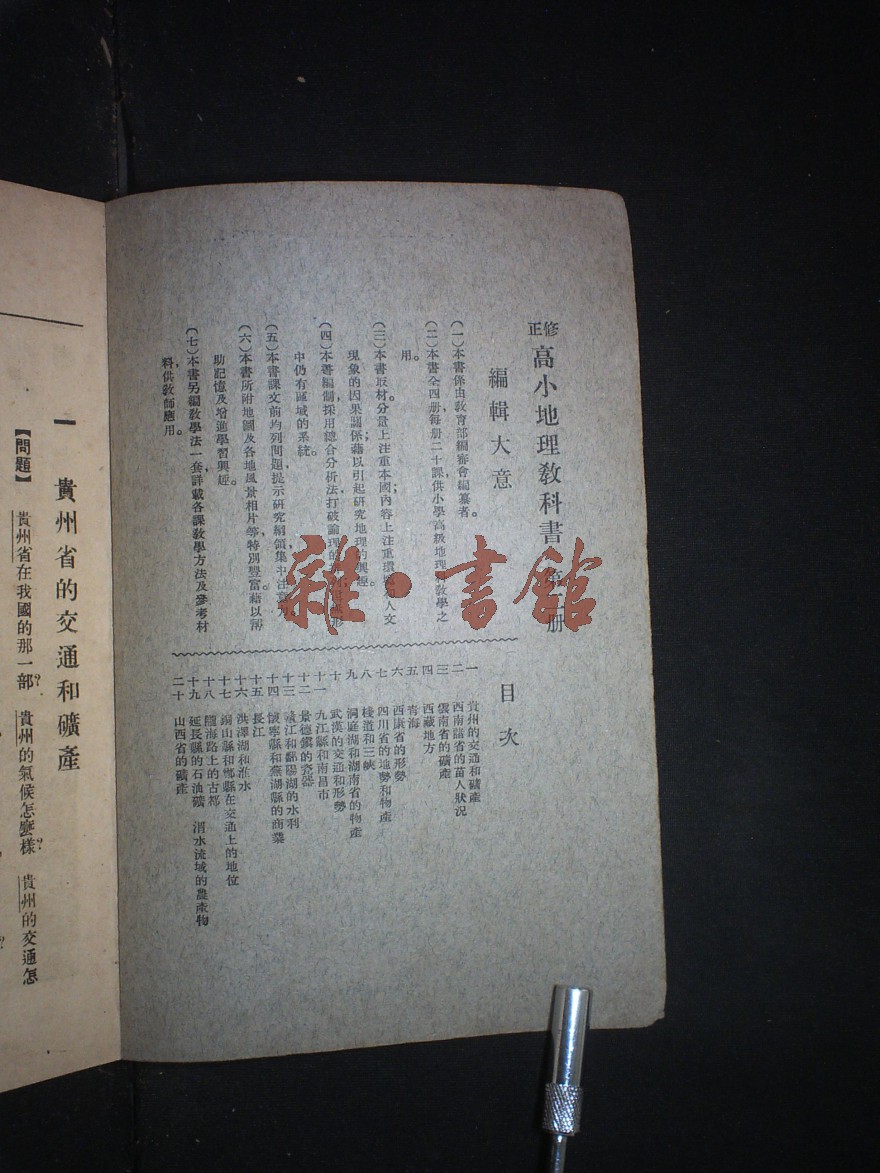 修正 高小地理敎科書 第 册
編輯大意
(一)本書係由敎育部編審會編纂者。
(二)本書全四册每册二十課供小學高級地理科敎學之
用。
(三)本書取材分量上注重本國內容上注重環境 人文
現象的因果關係藉以引起研究地理的興趣。
(四)本書編制採用總合分析法打破論理的 形
中仍有區域的系統。
(五)本書課文前均列問題提示硏究綱領集中注意力。
(六)本書所附地圖及各地風景相片等特別豐富藉以幫
助記憶及增進學習興趣。
(七)本書另編敎學法一套詳載各課敎學方法及參考材
料供敎師應用。
目次
一 貴州的交通和礦產
二 西南諸省的苗人狀況
三 雲南省的礦產
四 西藏地方
五 靑海
六 西康省的形勢
七 四川省的地勢和物產
八 棧道和三峽
九 洞庭湖和湖南省的物產
十 武漢的交通和形勢
十一 九江縣和南昌市
十二 景德鎭的瓷器
十三 贛江和鄱陽湖的水利
十四 懷寧縣和蕪湖縣的商業
十五 長江
十六 洪澤湖和淮水
十七 錫山縣和鄲縣在交通上的地位
十八 隴海路上的古都
十九 延長縣的石油礦 渭水流域的農產物
二十 山西省的礦產
雜·書館
一 貴州省的交通和礦產
【問題】 貴州省在我國的那一部? 貴州的氣候怎麼樣? 貴州的交通怎